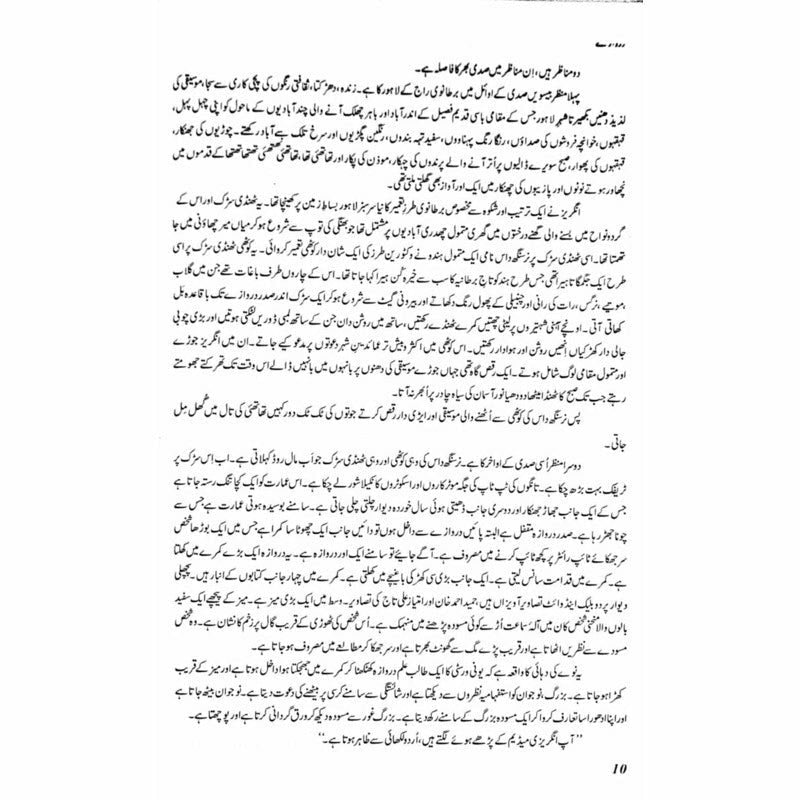 دو مناظر ہیں، اِن مناظر میں صدی بھر کا فاصلہ ہے۔
پہلا منظر بیسویں صدی کے اوائل میں برطانوی راج کے لاہور کا ہے۔ زندہ، دھڑکتا، ثقافتی رنگوں کی پچی کاری سے سجا، موسیقی کی
لذیذ دھنیں بکھیرتا شہر لاہور جس کے مقامی باسی قدیم فصیل کے اندر آباد اور باہر چھلک آنے والی چند آبادیوں کے ماحول کو اپنی چہل پہل،
قہقہوں، خوانچہ فروشوں کی صداؤں، رنگا رنگ پہناووں، سفید تہبندوں، رنگین پگڑیوں اور سرخ تلک سے آباد رکھتے۔ چوڑیوں کی جھنکار،
قہقہوں کی پھوار، صبح سویرے ڈالیوں پر اُتر آنے والے پرندوں کی چہکار، موذن کی پکار اور تھا تھئی تھا، تھا تھئی تھتھئی تھتھا تھتھا کے قدموں میں
نچھاور ہوتے نوٹوں اور پازیبوں کی چھنکار میں ایک اور آواز بھی گھلتی ملتی تھی۔
انگریز نے ایک ترتیب اور شکوہ سے مخصوص برطانوی طرزِ تعمیر کا نیا سرسبز لاہور بساطِ زمین پر کھینچا تھا۔ یہ ٹھنڈی سڑک اور اس کے
گردونواح میں بسنے والی گھنے درختوں میں گھری متمول چھدری آبادیوں پر مشتمل تھا جو بھنگی کی توپ سے شروع ہو کر میاں میر چھاؤنی میں جا
تھمتا تھا۔ اسی ٹھنڈی سڑک پر نرسنگھ داس نامی ایک متمول ہندو نے وکٹورین طرز کی ایک شان دار کوٹھی تعمیر کروائی۔ یہ کوٹھی ٹھنڈی سڑک پر اسی
طرح ایک جگمگاتا ہیرا تھی جس طرح ہند کو تاجِ برطانیہ کا سب سے خیرہ کُن ہیرا کہا جاتا تھا۔ اس کے چاروں طرف باغات تھے جن میں گلاب
، موتیے، نرگس، رات کی رانی اور چنبیلی کے پھول رنگ دکھاتے اور بیرونی گیٹ سے شروع ہو کر ایک سڑک اندر صدر دروازے تک باقاعدہ بل
کھاتی آتی۔ اونچے آہنی شہتیروں پر لیٹی چھتیں کمرے ٹھنڈے رکھتیں، ساتھ میں روشن دان جن کے ساتھ لمبی ڈوریں لٹکتی ہوتیں اور بڑی چوبی
جالی دار کھڑکیاں انھیں روشن اور ہوادار رکھتیں۔ اس کوٹھی میں اکثر و بیش تر عمائدینِ شہر دعوتوں پر مدعو کیے جاتے۔ ان میں انگریز جوڑے
اور متمول مقامی لوگ شامل ہوتے۔ ایک رقص گاہ تھی جہاں جوڑے موسیقی کی دھنوں پر بانہوں میں بانہیں ڈالے اس وقت تک تھرکتے جھومتے
رہتے جب تک صبح کا ٹھنڈا میٹھا دودھیا نور آسمان کی سیاہ چادر پر اُبھر نہ آتا۔
پس نرسنگھ داس کی کوٹھی سے اُٹھنے والی موسیقی اور ایڑی دار رقص کرتے جوتوں کی ٹک ٹک دور کہیں تھا تھئی کی تال میں گھل مِل
جاتی۔
دوسرا منظر اُسی صدی کے اواخر کا ہے۔ نرسنگھ داس کی وہی کوٹھی اور وہی ٹھنڈی سڑک جو اَب مال روڈ کہلاتی ہے۔ اب اِس سڑک پر
ٹریفک بہت بڑھ چکا ہے۔ تانگوں کی ٹپ ٹاپ کی جگہ موٹر کاروں اور اسکوٹروں کا نکیلا شور لے چکا ہے۔ اس عمارت کو ایک کچا تنگ رستہ جاتا ہے
جس کے ایک جانب جھاڑ جھنکار اور دوسری جانب ڈھیتی ہوئی سال خوردہ دیوار چلتی چلی جاتی ہے۔ سامنے بوسیدہ ہوتی عمارت ہے جس سے
چونا جھڑ رہا ہے۔ صدر دروازہ مقفل ہے البتہ پائیں دروازے سے داخل ہوں تو دائیں جانب ایک چھوٹا سا کمرا ہے جس میں ایک بوڑھا شخص
سر جھکائے ٹائپ رائٹر پر کچھ ٹائپ کرنے میں مصروف ہے۔ آگے جائیے تو سامنے ایک اور دروازہ ہے۔ یہ دروازہ ایک بڑے کمرے میں کھلتا
ہے۔ کمرے میں قدامت سانس لیتی ہے۔ ایک جانب بڑی سی کھڑکی باغیچے میں کھلتی ہے۔ کمرے میں چہار جانب کتابوں کے انبار ہیں۔ پچھلی
دیوار پر دو بلیک اینڈ وائٹ تصاویر آویزاں ہیں، حمید احمد خان اور امتیاز علی تاج کی تصاویر۔ وسط میں ایک بڑی میز ہے۔ میز کے پیچھے ایک سفید
بالوں والا منحنی شخص کان میں آلۂ سماعت اُڑسے کوئی مسودہ پڑھنے میں منہمک ہے۔ اُس شخص کی ٹھوڑی کے قریب گال پر زخم کا نشان ہے۔ وہ شخص
مسودے سے نظریں اٹھاتا ہے اور قریب پڑے مگ سے گھونٹ بھرتا ہے اور سر جھکا کر مطالعے میں مصروف ہو جاتا ہے۔
یہ نوے کی دہائی کا واقعہ ہے کہ یونی ورسٹی کا ایک طالب علم دروازہ کھٹکھٹا کر کمرے میں جھجکتا ہوا داخل ہوتا ہے اور میز کے قریب
کھڑا ہو جاتا ہے۔ بزرگ، نوجوان کو استفہامیہ نظروں سے دیکھتا ہے اور شائستگی سے سامنے کرسی پر بیٹھنے کی دعوت دیتا ہے۔ نوجوان بیٹھ جاتا ہے
اور اپنا ادھورا سا تعارف کروا کر ایک مسودہ بزرگ کے سامنے رکھ دیتا ہے۔ بزرگ غور سے مسودہ دیکھ کر ورق گردانی کرتا ہے اور پوچھتا ہے۔
”آپ انگریزی میڈیم کے پڑھے ہوئے لگتے ہیں، اُردو لکھائی سے ظاہر ہوتا ہے۔“
10